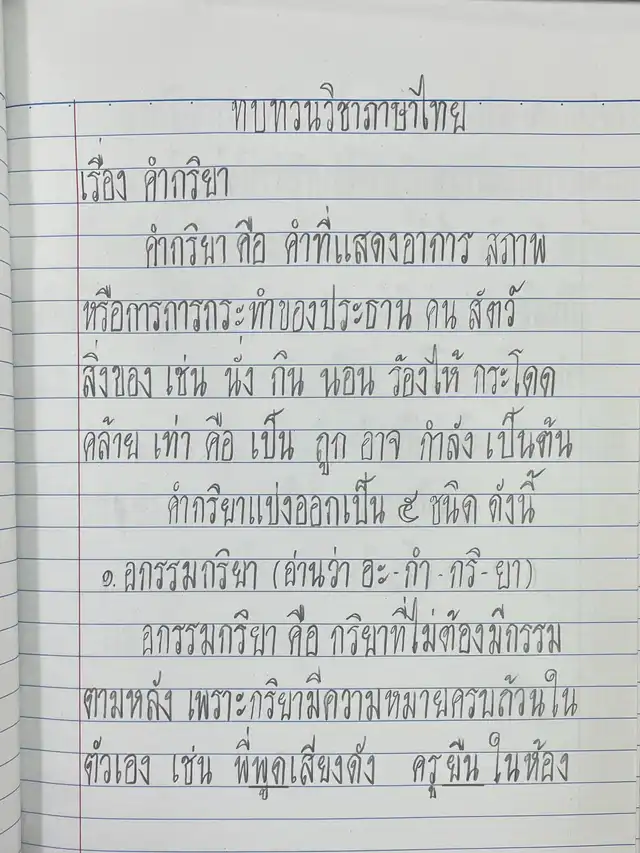 ทบทวนวิชาภาษาไทย
เรื่อง คำกริยา
คำกริยา คือ คำที่แสดงอาการ สภาพ
หรือการการกระทำของประธาน คน สัตว์
สิ่งของ เช่น นั่ง กิน นอน ร้องไห้ กระโดด
คล้าย เท่า คือ เป็น ถูก อาจ กำลัง เป็นต้น
คำกริยาแบ่งออกเป็น ๕ ชนิด ดังนี้
๑. อกรรมกริยา (อ่านว่า อะ-กำ-กริ-ยา)
อกรรมกริยา คือ กริยาที่ไม่ต้องมีกรรม
ตามหลัง เพราะกริยามีความหมายครบถ้วนใน
ตัวเอง เช่น พี่พูดเสียงดัง ครูยืนในห้อง